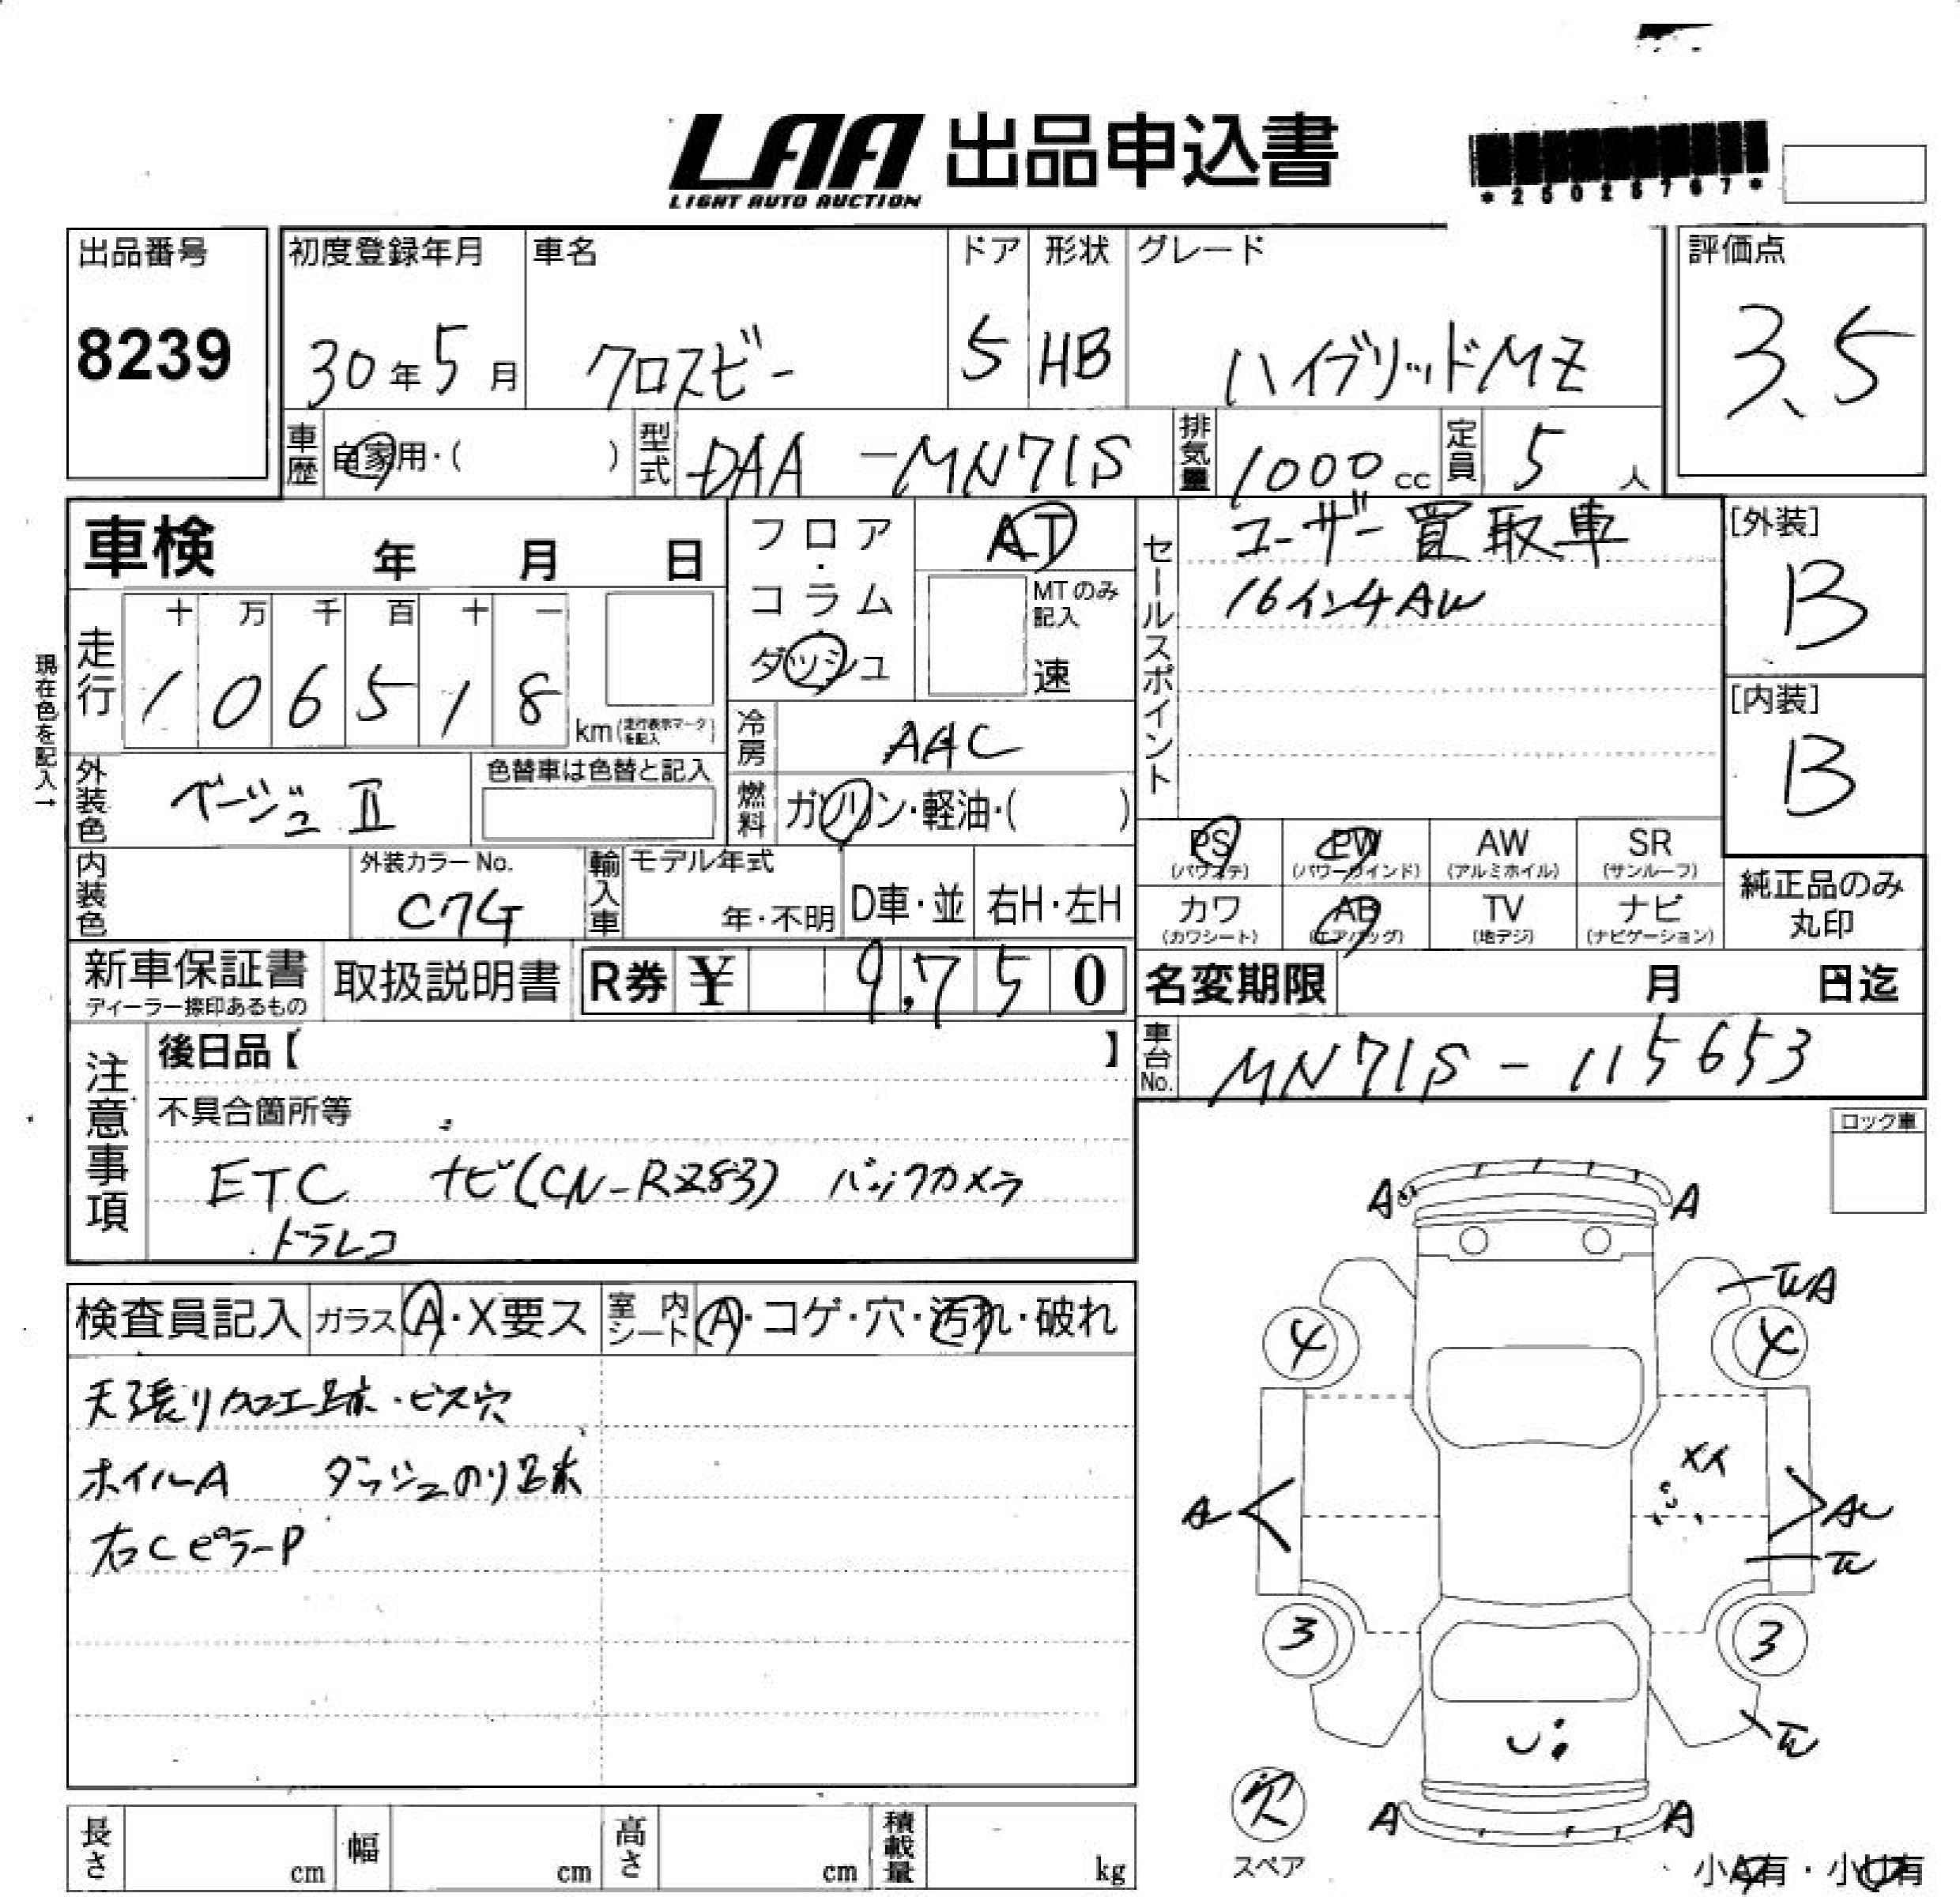 LAA 出品申込書
LIGHT AUTO AUCTION
出品番号
8239
初度登録年月
30年5月
車名
クロスビー
ドア
5
形状
HB
グレード
ハイブリッドMZ
評価点
3.5
車歴 自家用・( )
型式 DAA-MN71S
排気量 1000cc
定員 5人
車検 年 月 日
フロア・コラム・ダッシュ
AT
MTのみ記入
速
セールスポイント
ユーザー買取車
16インチAW
[外装]
B
[内装]
B
現在色を記入→
走行
十 万 千 百 十 一
1 0 6 5 1 8 km(走行表示マークを記入)
冷房 AAC
外装色 ベージュII
色替車は色替と記入
燃料 ガソリン・軽油・( )
PS (パワステ)
PW (パワーウインド)
AW (アルミホイル)
SR (サンルーフ)
カワ (カワシート)
AB (エアバッグ)
TV (地デジ)
ナビ (ナビゲーション)
純正品のみ丸印
内装色
外装カラーNo.
C7G
輸入車
モデル年式
年・不明
D車・並
右H・左H
新車保証書
ディーラー捺印あるもの
取扱説明書
R券 ¥ 9,750
名変期限 月 日迄
車台No. MN71S-115653
注意事項
後日品【 】
不具合箇所等
ETC ナビ(CN-RZ83) バックカメラ
ドラレコ
ロック車
検査員記入
ガラス A・X要ス
室内シート A・コゲ・穴・汚れ・破れ
天張り加工跡・ビス穴
ホイルA ダッシュのり跡
右CピラーP
A A
WA
4 4
A
AU
W
3 3
W
A A
スペア
小A有・小U有
長さ cm
幅 cm
高さ cm
積載量 kg